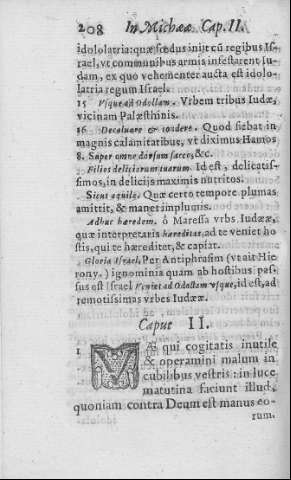 208 In Michææ Cap. II.
idololatria: quæ fœdus inijt cũ regibus Is-
rael, vt communibus armis infestarent Iu-
dam, ex quo vehementer aucta est idolo-
latria regum Israel.
15 Vsque ad Odollam. Vrbem tribus Iudæ,
vicinam Palæsthinis.
16 Decaluare & tondere. Quod fiebat in
magnis calamitatibus, vt diximus Hamos
8. Super omne dorsum saccus, &c.
Filios deliciarum tuarum. Id est, delicatis-
simos, in delicijs maximis nutritos.
Sicut aquila. Quæ certo tempore plumas
amittit, & manet implumis.
Adhuc hæredem. ô Maressa vrbs Iudææ,
quæ interpretaris hæreditas, ad te veniet ho
stis, qui te hæreditet, & capiat.
Gloria Israel. Per Antiphrasim (vt ait Hie
rony.) ignominia quam ab hostibus pas-
sus est Israel Veniet ad Odollam vsque, id est, ad
remotissimas vrbes Iudææ.
Caput II.
1 VAE qui cogitatis inutile
& operamini malum in
cubilibus vestris: in luce
matutina faciunt illud,
quoniam contra Deum est manus eo-
rum.